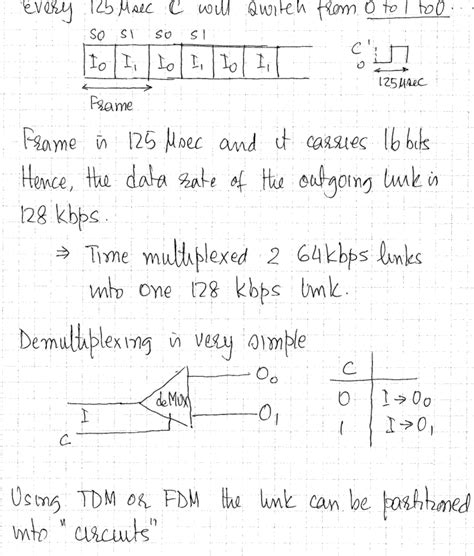 Every 125 μsec C will switch from 0 to 1 to 0.
S0 S1 S0 S1
I0 I1 I0 I1 I0 I1
C 1
0
125 μsec
Frame
Frame is 125 μsec and it carries 16 bits
Hence, the data rate of the outgoing link is
128 kbps.
⇒ Time multiplexed 2 64kbps links
into one 128 kbps link.
Demultiplexing is very simple
deMUX
I
C
O0
O1
C
0 I→O0
1 I→O1
Using TDM or FDM the link can be partitioned
into "circuits"